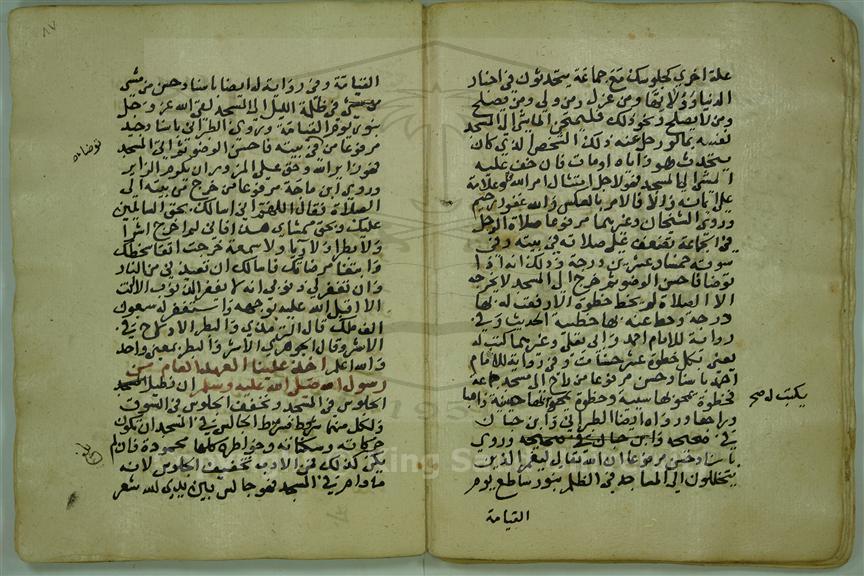 علة اخرى كجلوسك مع جماعة يتحدثون في اخبار
الدنيا وولاتها ومن عزل ومن ولي ومن يصلح
ومن لا يصلح ونحو ذلك فليمتحن الماشي الى المسجد
نفسه بما لو رحل عنه ذلك الشخص الذي كان
يتحدث هو واياه او مات فان خف عليه
المشي الى المسجد فهو لاجل امتثال امر الله وعلامة
على ايمانه والا فالامر بالعكس والله غفور رحيم
وروى الشيخان وغيرهما مرفوعا صلاة الرجل
في الجماعة تضعف على صلاته في بيته وفي
سوقه خمسا وعشرين درجة وذلك انه اذا
توضا فاحسن الوضوء ثم خرج الى المسجد لا يخرجه
الا الصلاة لم يخط خطوة الا رفعت له بها
درجة وحط عنه بها خطيئة الحديث وفي
رواية للامام احمد وابي يعلى وغيرهما كتب له
بكل خطوة عشر حسنات وفي رواية للامام
احمد باسناد حسن مرفوعا من راح الى مسجد جماعة
فخطوة تمحو سيئة وخطوة حسنة ذاهبا
يكتب له صح
وراجعا ورواه ايضا الطبراني وابن حبان
في صحيحه وروى
باسناد حسن مرفوعا ان الله تعالى ليضيء للذين
يتخللون الى المساجد في الظلم بنور ساطع يوم
القيامة
٨٧
القيامة وفي رواية له ايضا باسناد حسن من مشى
في ظلمة الليل الى المسجد لقي الله عز وجل
بنور يوم القيامة وروى الطبراني باسناد جيد
مرفوعا من في بيته فاحسن الوضوء ثم اتى المسجد
توضا صح
فهو زاير الله وحق على المزور ان يكرم الزاير
وروى ابن ماجة مرفوعا من خرج من بيته الى
الصلاة فقال اللهم اني اسالك بحق السائلين
عليك وبحق ممشاي هذا فاني لم اخرج اشرا
ولا بطرا ولا رياء ولا سمعة خرجت اتقاء سخطك
وابتغاء مرضاتك فاسالك ان تعيذني من النار
وان تغفر لي ذنوبي انه لا يغفر الذنوب الا انت
الا اقبل الله عليه بوجهه واستغفر له سبعون
الف ملك قال
الاشر وقال الجوهري الاشر والبطر بمعنى واحد
والله اعلم اخذ علينا العهد العام من
رسول الله صلى الله عليه وسلم ان نطيل
الجلوس في المسجد ونخفف الجلوس في السوق
ولكل منهما شرط فشرط الجالس في المسجد ان تكون
حركاته وسكناته وخواطره كلها محمودة فان لم
يكن كذلك فمن الادب تخفيف الجلوس لانه
ما دام في المسجد فهو جالس بين يدي الله شعر